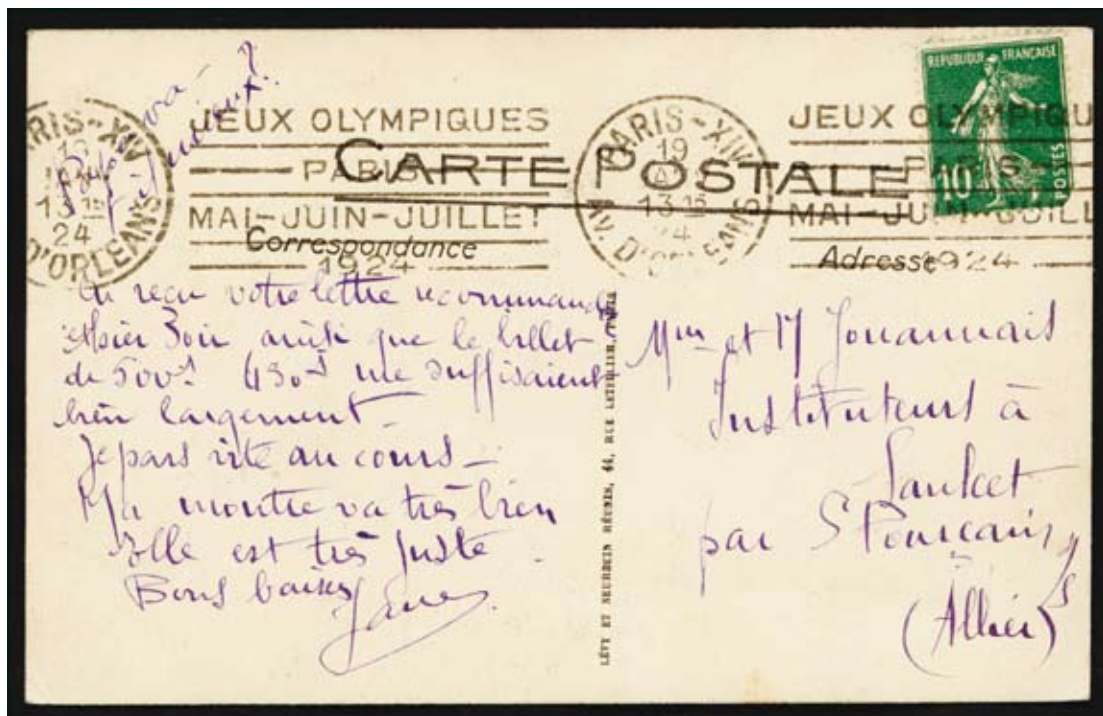 Papa va ?
mieux ?
JEUX OLYMPIQUES
PARIS
MAI-JUIN-JUILLET
1924
PARIS-XIV
13 15
24
D'ORLEANS
CARTE POSTALE
PARIS-XIV
19
13 15
24
AV. D'ORLEANS
JEUX OLYMPIQU
PARIS
MAI-JUIN-JUILL
1924
REPUBLIQUE FRANÇAISE
10
POSTES
Correspondance
Adresse
reçu votre lettre recommandée
hier soir ainsi que le billet
de 500 f 450 f me suffisaient
bien largement
Je pars vite au cours -
Ma montre va très bien
Elle est très juste.
Bons baisers
LÉVY ET NEURDEIN RÉUNIS, 44, RUE LETELLIER, PARIS
Mme et M Jouannais
Instituteurs à
Saulcet
par St Pourçain s/s
(Allier)